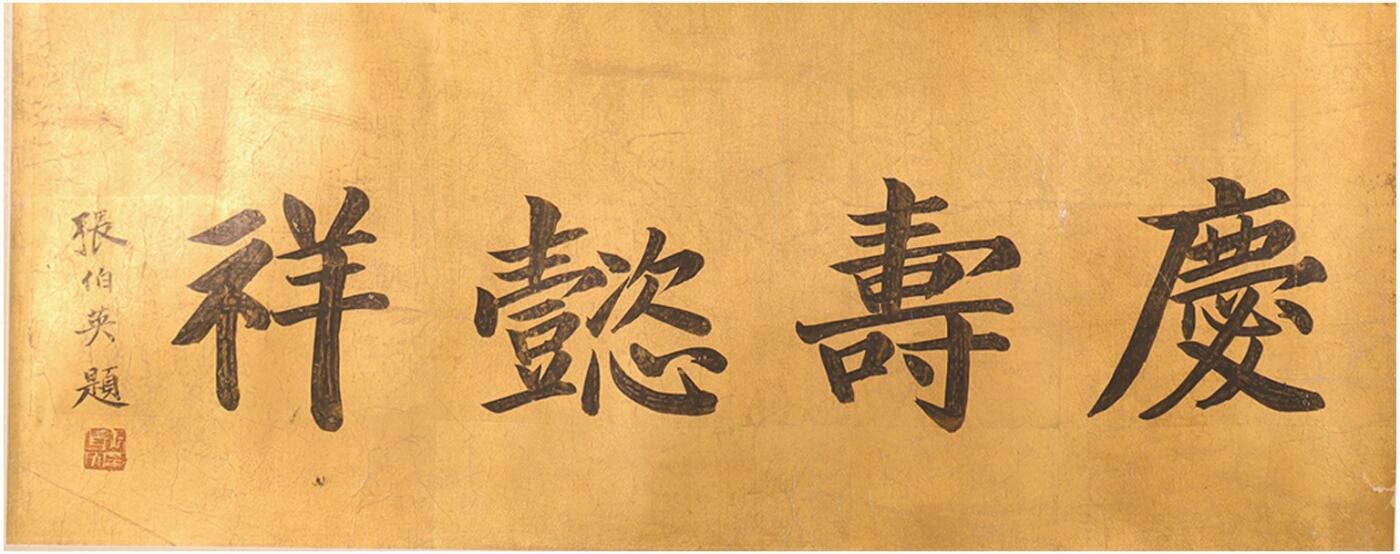 慶壽懿祥
張伯英題